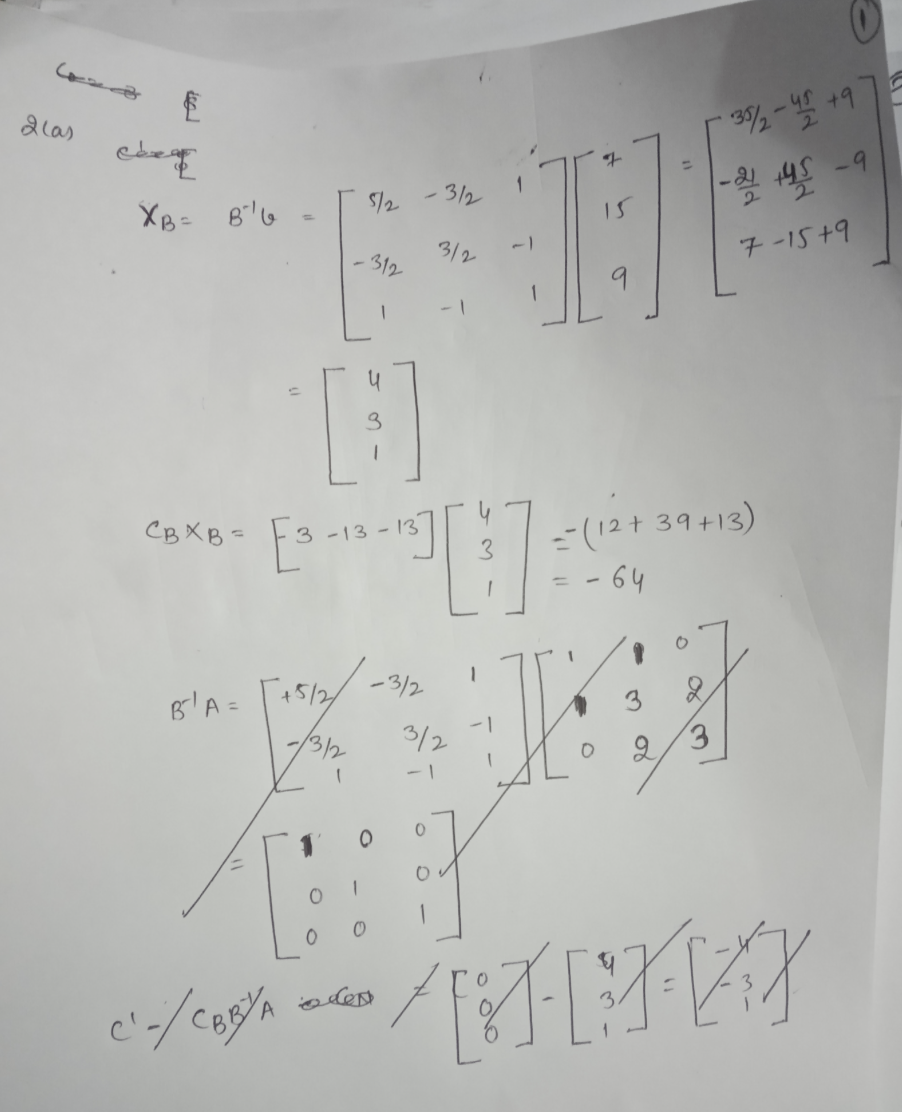 1
2(a)
X_B = B⁻¹b = [ 5/2 -3/2 1 ; -3/2 3/2 -1 ; 1 -1 1 ] [ 7 ; 15 ; 9 ] = [ 35/2 - 45/2 + 9 ; -21/2 + 45/2 - 9 ; 7 - 15 + 9 ]
= [ 4 ; 3 ; 1 ]
C_B X_B = [ -3 -13 -13 ] [ 4 ; 3 ; 1 ] = -(12 + 39 + 13)
= -64
B⁻¹A = [ +5/2 -3/2 1 ; -3/2 3/2 -1 ; 1 -1 1 ] [ 1 1 0 ; 1 3 2 ; 0 2 3 ]
= [ 1 0 0 ; 0 1 0 ; 0 0 1 ]
C' - C_B B⁻¹A = [ 0 ; 0 ; 0 ] - [ 4 ; 3 ; 1 ] = [ -4 ; -3 ; 1 ]